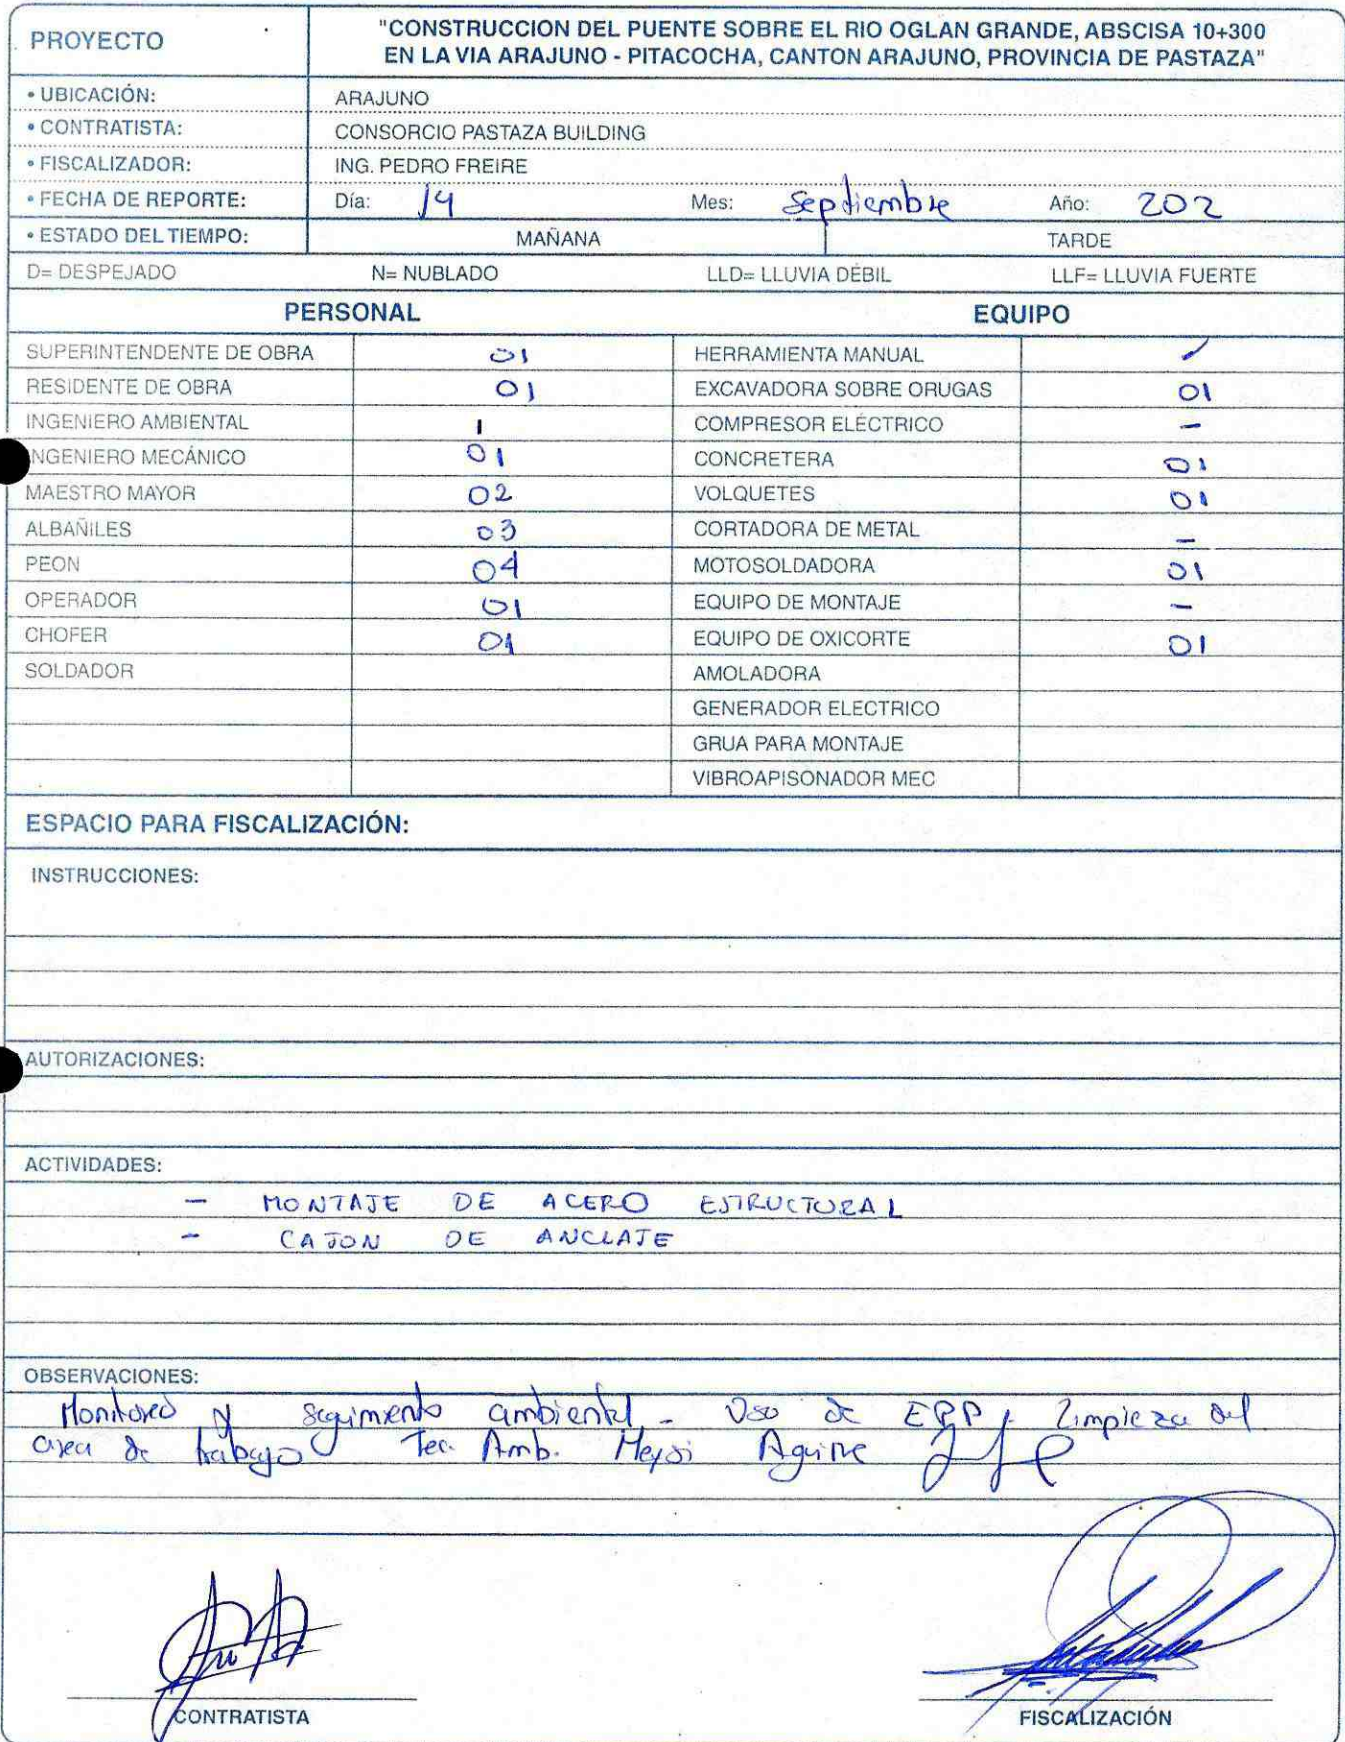 PROYECTO
"CONSTRUCCION DEL PUENTE SOBRE EL RIO OGLAN GRANDE, ABSCISA 10+300
EN LA VIA ARAJUNO - PITACOCHA, CANTON ARAJUNO, PROVINCIA DE PASTAZA"
• UBICACIÓN: ARAJUNO
• CONTRATISTA: CONSORCIO PASTAZA BUILDING
• FISCALIZADOR: ING. PEDRO FREIRE
• FECHA DE REPORTE: Día: 14 Mes: Septiembre Año: 202
• ESTADO DEL TIEMPO: MAÑANA TARDE
D= DESPEJADO N= NUBLADO LLD= LLUVIA DÉBIL LLF= LLUVIA FUERTE
PERSONAL EQUIPO
SUPERINTENDENTE DE OBRA 01 HERRAMIENTA MANUAL
RESIDENTE DE OBRA 01 EXCAVADORA SOBRE ORUGAS 01
INGENIERO AMBIENTAL 1 COMPRESOR ELÉCTRICO –
NGENIERO MECÁNICO 01 CONCRETERA 01
MAESTRO MAYOR 02 VOLQUETES 01
ALBAÑILES 03 CORTADORA DE METAL –
PEON 04 MOTOSOLDADORA 01
OPERADOR 01 EQUIPO DE MONTAJE –
CHOFER 01 EQUIPO DE OXICORTE 01
SOLDADOR AMOLADORA
GENERADOR ELECTRICO
GRUA PARA MONTAJE
VIBROAPISONADOR MEC
ESPACIO PARA FISCALIZACIÓN:
INSTRUCCIONES:
AUTORIZACIONES:
ACTIVIDADES:
– MONTAJE DE ACERO ESTRUCTURAL
– CAJON DE ANCLAJE
OBSERVACIONES:
Monitoreo y seguimiento ambiental - Uso de EPP y Limpieza del
area de trabajo Tec. Amb. Meysi Aguirre
CONTRATISTA FISCALIZACIÓN